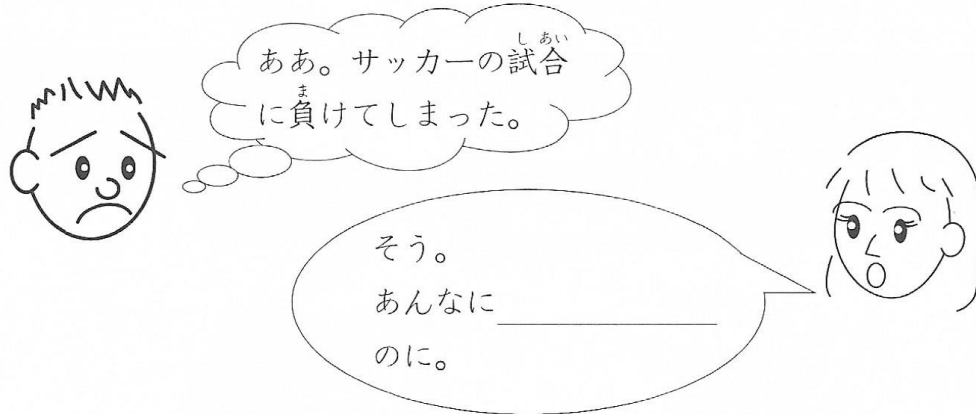 ああ。サッカーの試合
に負けてしまった。
そう。
あんなに__________
のに。